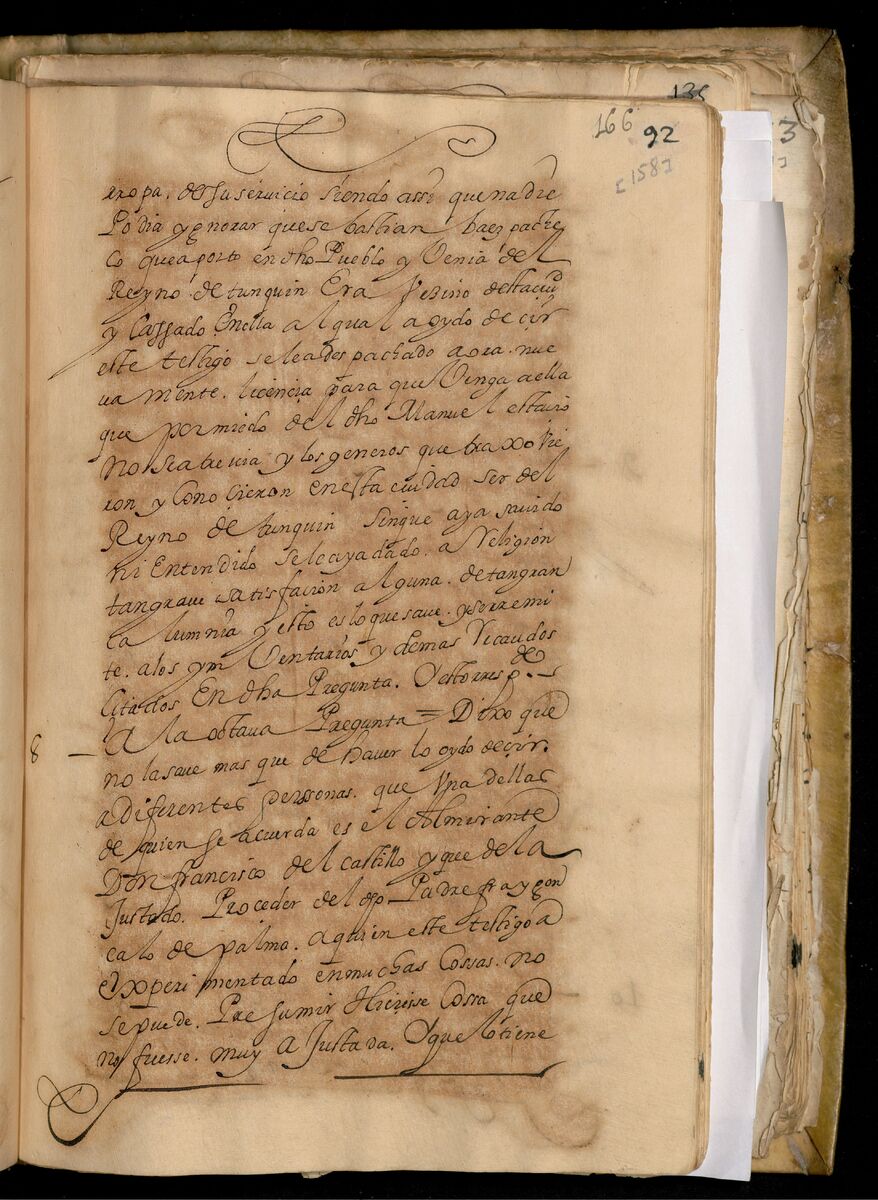 135
166 92
[158]
3
rropa. de su serviçio siendo assi que nadie
Podia ygnorar que se bastian baez pache
co que aporto en dho Pueblo y Venia del
Reyno de tunquin Era Vesino desta ciud
y Cassado En ella al qual a oydo deçir
este testigo se le a despachado aora. nue
va mente. liçençia para que Venga a ella
que por miedo del dho Manuel
no se atrevia y los generos que traxo Vie
ron y Conosieron en esta ciudad ser del
Reyno de tunquin sin que aya savido
ni Entendido se le aya dado. a Religion
tan grave satisfaçion alguna. de tan gran
Calumnia y esto es lo que save. y se rremi
te. a los ymVentarios y demas Recaudos
Citados En dha Pregunta. Y esto rresp.de
8 A la octava Pregunta = Dixo que
no la save mas que de haver lo oydo deçir.
a Diferentes personas. que Vna dellas
de quien se acuerda es el Almirante
Don françisco del castillo y que de la
Justado. Proceder del dho Padre fray gon
calo de palma. a quien este testigo a
Experimentado en muchas Cossas. no
se puede. Presumir Hiciesse Cossa que
no fuesse. muy aJustada. Y que lo tiene